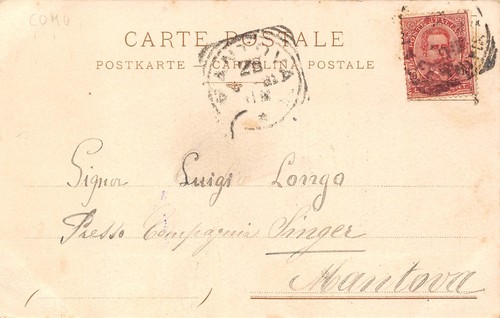 COMO
CARTE POSTALE
POSTKARTE — CARTOLINA POSTALE
28
Signor Luigi Longo
Presso Compagnia Singer
Mantova